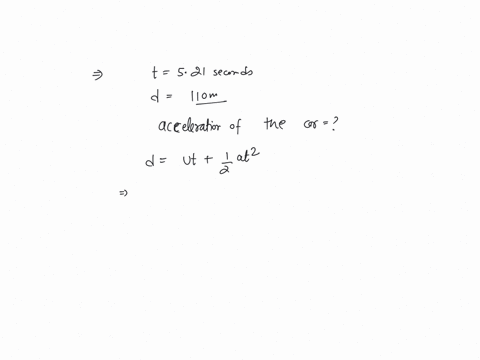 ⇒ t = 5.21 seconds
d = 110m
acceleration of the car = ?
d = ut + 1/2 at²
⇒